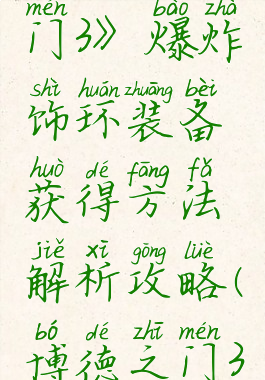 mén bào zhà
门3》 爆炸
shì huán zhuāng bèi
饰环装备
huò dé fāng fǎ
获得方法
jiě xī gōng lüè
解析攻略(
bó dé zhī mén
博德之门3